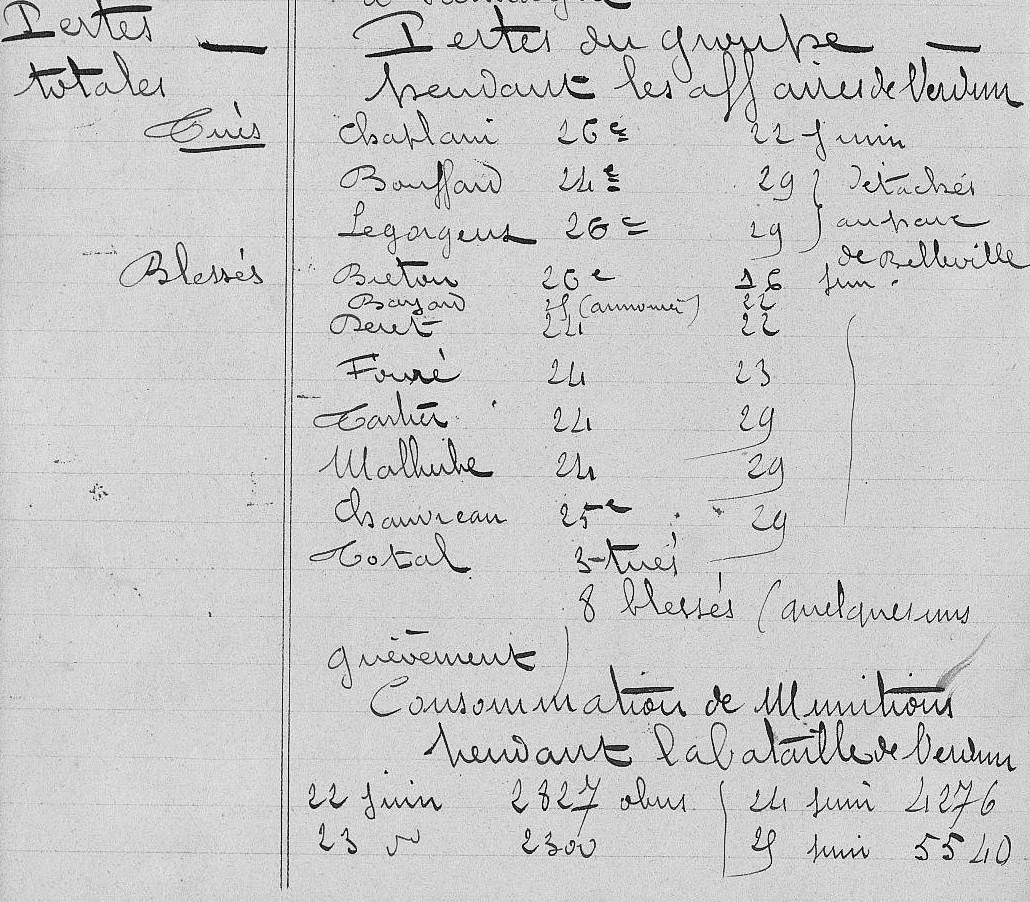 Pertes — Pertes du groupe —
totales pendant les affaires de Verdun
Tués Chaplain 26e 22 Juin
Bouffard 24e 29 } Détachés
Legorgeux 26e 29 } au parc
de Belleville
Blessés Breton 26e 16 Juin.
Bayard 25 (annoncier) 22
Peret 24 22
Fouré 24 23
Tartier 24 29
Malherbe 24 29
Chauvreau 25e 29
Total 3 tués
8 blessés (quelques uns
grièvement)
Consommation de Munitions
pendant la bataille de Verdun
22 Juin 2827 obus 24 Juin 4276
23 do 2300 25 Juin 5540